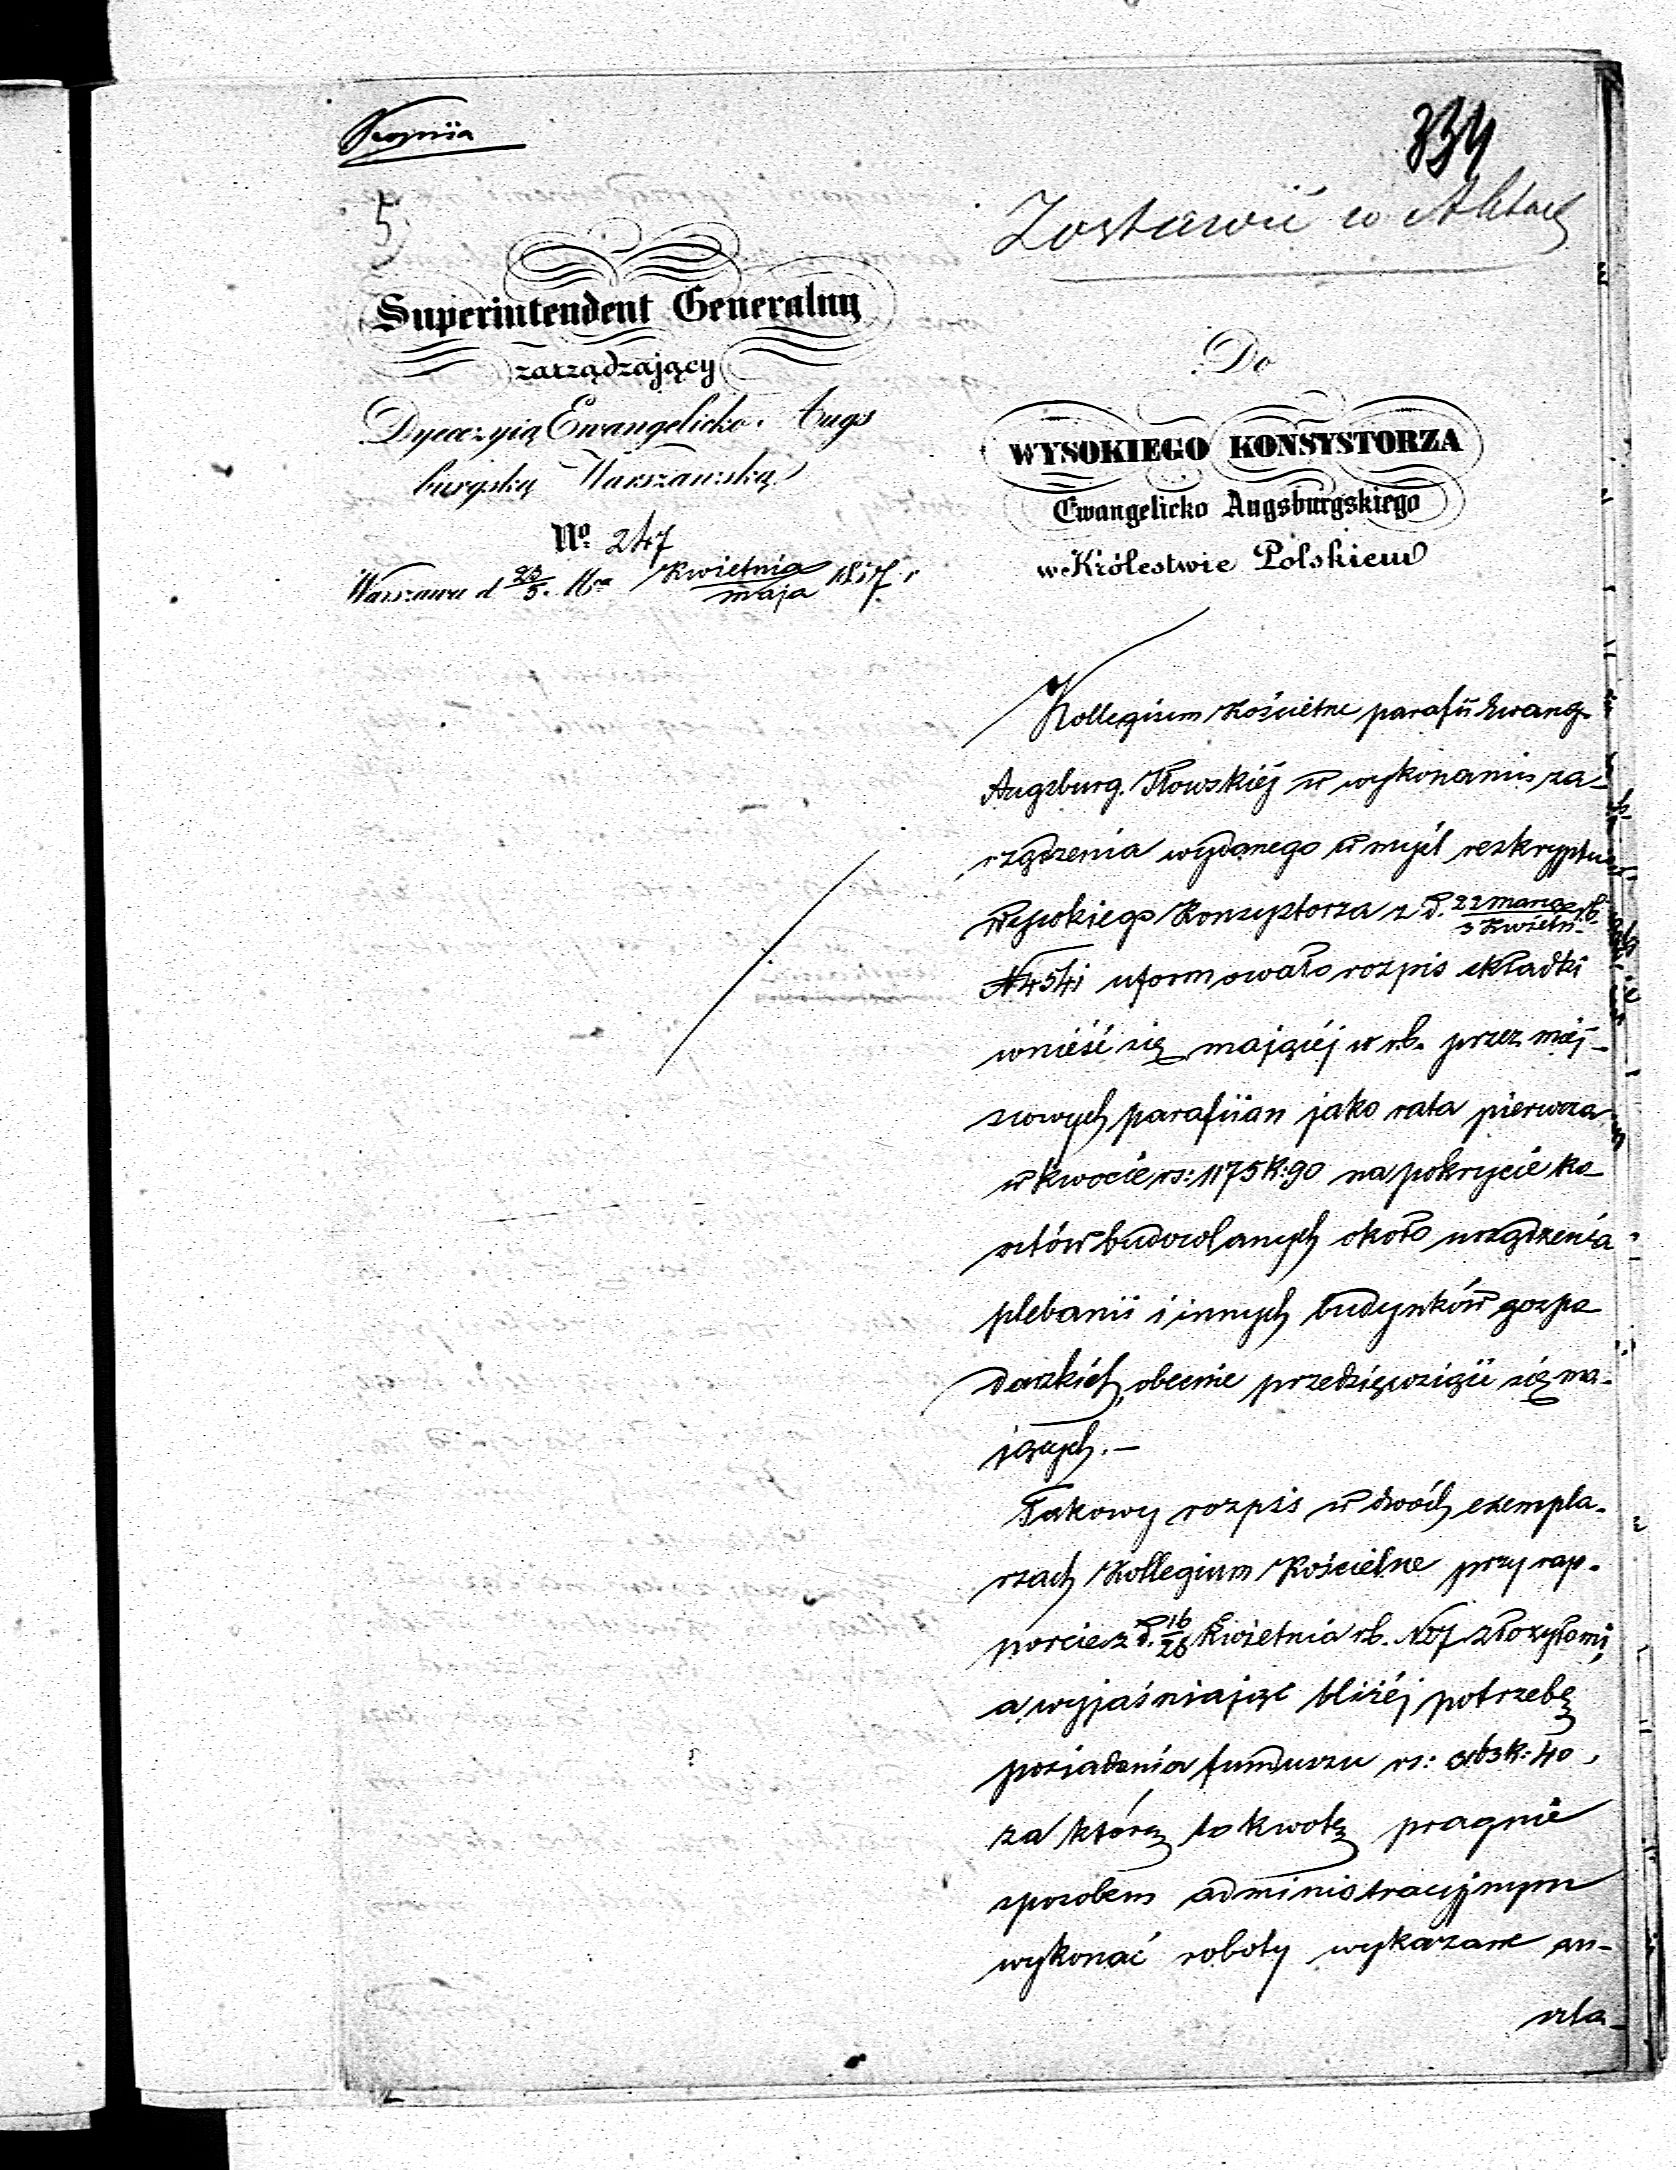 334
Zostawić w Aktach
5
Superintendent Generalny
zarządzający
Dyecezyią Ewangelicko. Augs
burgską Warszawską
No. 247
Warszawa d 23/5. Kwietnia/maja 1857 r
Do
WYSOKIEGO KONSYSTORZA
Ewangelicko Augsburgskiego
w Królestwie Polskiem
Kollegium Kościelne parafii Ewang.
Augsburg. Iłowskiéj w wykonaniu za-
rządzenia wydanego w myśl reskryptu
Wysokiego Konsystorza z d. 22 marca/3 Kwietn. rb.
N 454 uformowało rozpis składki
wnieść się mającéj w rb. przez miéj-
scowych parafiian jako rata pierwsza
w kwocie rs: 1175 k: 90 na pokrycie ko-
sztów budowlanych około urządzenia
plebanii i innych budynków gospo
darskich, obecnie przedsięwziąść się ma-
jących. —
Takowy rozpis w dwóch exempla-
rzach Kollegium Kościelne przy rap-
porcie z d. 16/28 Kwietnia rb. złożyło mi,
a wyjaśniając bliżéj potrzebę
posiadania funduszu rs: k: 40,
za którą to kwotę pragnie
sposobem administracyjnym
wykonać roboty wykazane an-
szla-